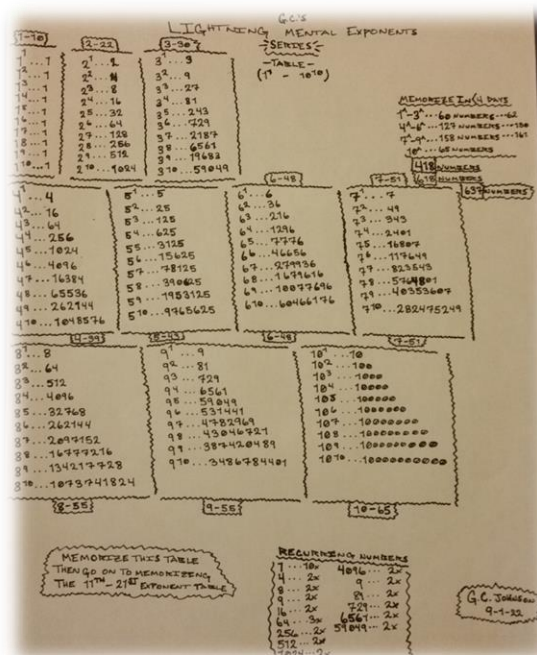 G.C.'S
LIGHTNING MENTAL EXPONENTS
SERIES
-TABLE-
(1¹ - 10¹⁰)
1-10
1¹...1
1²...1
1³...1
1⁴...1
1⁵...1
1⁶...1
1⁷...1
1⁸...1
1⁹...1
1¹⁰...1
2-22
2¹...2
2²...4
2³...8
2⁴...16
2⁵...32
2⁶...64
2⁷...128
2⁸...256
2⁹...512
2¹⁰...1024
3-30
3¹...3
3²...9
3³...27
3⁴...81
3⁵...243
3⁶...729
3⁷...2187
3⁸...6561
3⁹...19683
3¹⁰...59049
MEMORIZE IN 4 DAYS
1^-3^...60 NUMBERS---62
4^-6^...127 NUMBERS---130
7^-9^...158 NUMBERS---161
10^...65 NUMBERS
418 NUMBERS
618 NUMBERS
637 NUMBERS
4¹...4
4²...16
4³...64
4⁴...256
4⁵...1024
4⁶...4096
4⁷...16384
4⁸...65536
4⁹...262144
4¹⁰...1048576
4-39
5¹...5
5²...25
5³...125
5⁴...625
5⁵...3125
5⁶...15625
5⁷...78125
5⁸...390625
5⁹...1953125
5¹⁰...9765625
5-43
6-48
6¹...6
6²...36
6³...216
6⁴...1296
6⁵...7776
6⁶...46656
6⁷...279936
6⁸...1679616
6⁹...10077696
6¹⁰...60466176
6-48
7-51
7¹...7
7²...49
7³...343
7⁴...2401
7⁵...16807
7⁶...117649
7⁷...823543
7⁸...5764801
7⁹...40353607
7¹⁰...282475249
7-51
8¹...8
8²...64
8³...512
8⁴...4096
8⁵...32768
8⁶...262144
8⁷...2097152
8⁸...16777216
8⁹...134217728
8¹⁰...1073741824
8-55
9¹...9
9²...81
9³...729
9⁴...6561
9⁵...59049
9⁶...531441
9⁷...4782969
9⁸...43046721
9⁹...387420489
9¹⁰...3486784401
9-55
10¹...10
10²...100
10³...1000
10⁴...10000
10⁵...100000
10⁶...1000000
10⁷...10000000
10⁸...100000000
10⁹...1000000000
10¹⁰...10000000000
10-65
MEMORIZE THIS TABLE
THEN GO ON TO MEMORIZING
THE 11TH - 21ST EXPONENT TABLE
RECURRING NUMBERS
1...10x 4096...2x
4...2x 9...2x
8...2x 81...2x
9...2x 729...2x
16...2x 6561...2x
64...3x 59049...2x
256...2x
512...2x
1024...2x
G.C. JOHNSON
9-1-22